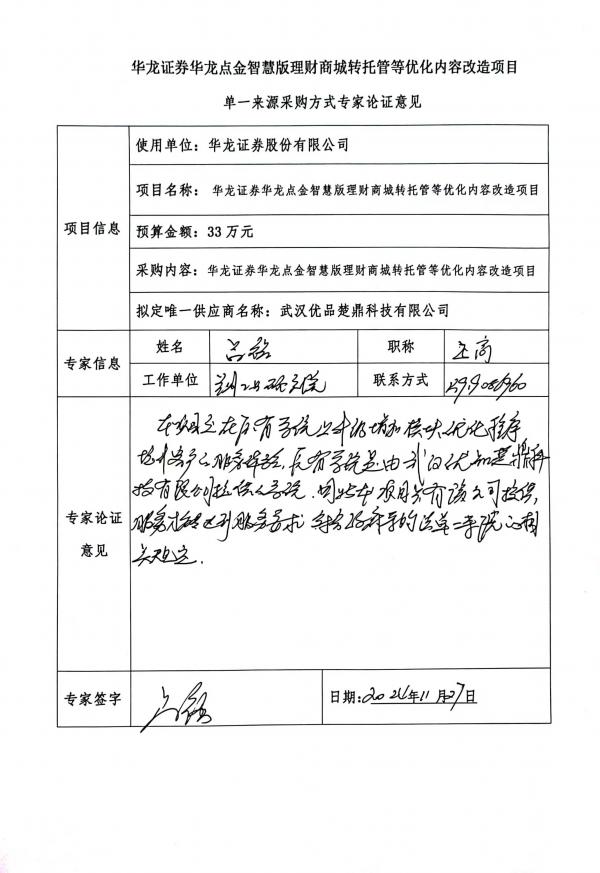 华龙证券华龙点金智慧版理财商城转托管等优化内容改造项目
单一来源采购方式专家论证意见
项目信息
使用单位：华龙证券股份有限公司
项目名称： 华龙证券华龙点金智慧版理财商城转托管等优化内容改造项目
预算金额：33 万元
采购内容：华龙证券华龙点金智慧版理财商城转托管等优化内容改造项目
拟定唯一供应商名称：武汉优品楚鼎科技有限公司
专家信息
姓名
职称 正高
工作单位
联系方式
专家论证意见
本项目是在原有系统上升级增加模块，优化程序
提升客户的服务体验，原有系统是由武汉优品楚鼎科
技有限公司提供的系统。因此本项目只有该公司提供
服务才能达到服务要求
关规定.
专家签字
日期：2024年11月27日